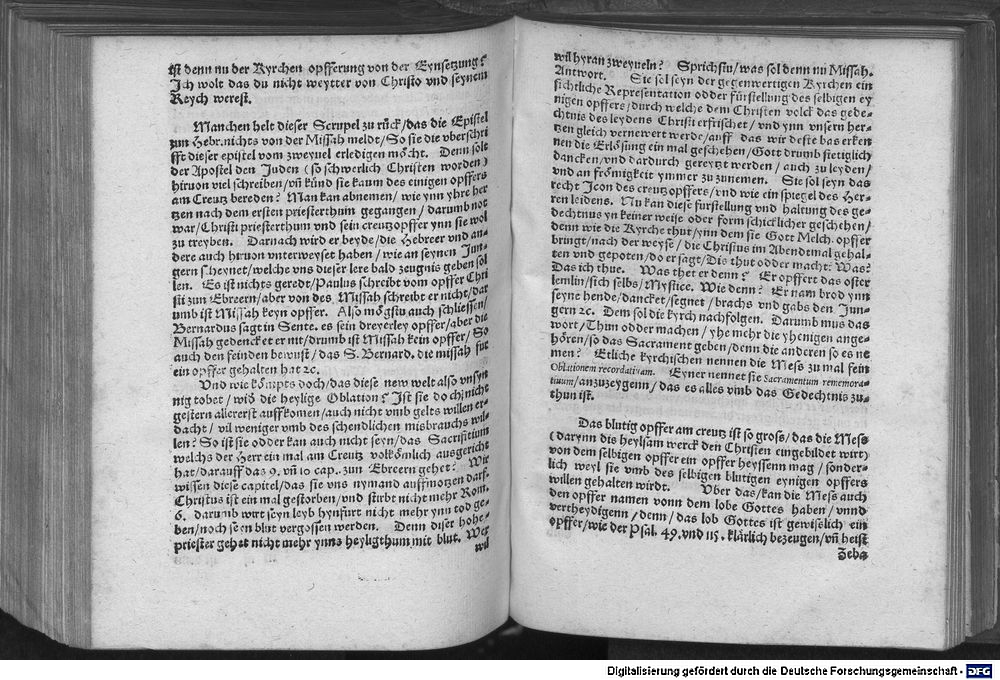 ist denn nu der Kyrchen opfferung von der Eynsetzung?
Jch wolt das du nicht weytter von Christo vnd seynem
Reych werest.
Manchen helt dieser Scrupel zu rück/das die Epistel
zun Hebr. nichts von der Missah meldt/So sie die vberschri
fft dieser epistel vom zweyuel erledigen möcht. Denn solt
der Apostel den Juden (so schwerlich Christen worden)
hiruon viel schreiben/vñ künd sie kaum des einigen opffers
am Creutz bereden? Man kan abnemen/wie ynn yhre her
tzen nach dem ersten priesterthum gegangen/darumb not
war/Christi priesterthum vnd sein creutzopffer ynn sie wol
zu treyben. Darnach wird er beyde/die Hebreer vnd an-
dere auch hiruon vnterweyset haben/wie an seynen Jun-
gern scheynet/welche vns dieser lere bald zeugnis geben sol
len. Es ist nichts geredt/Paulus schreibt vom opffer Chri
sti zun Ebreern/aber von des Missah schreibt er nicht/dar
umb ist Missah keyn opffer. Also mögstu auch schliessen/
Bernardus sagt in Sente. es sein dreyerley opffer/aber die
Missah gedencket er nit/drumb ist Missah kein opffer/So
auch den feinden bewust/das S. Bernard. die missah fur
ein opffer gehalten hat ꝛc.
Vnd wie kömpts doch/das diese new welt also vnsyn
nig tobet/wid die heylige Oblation? Jst sie doch nicht
gestern allererst auffkomen/auch nicht vmb geltes willen er-
dacht/vil weniger vmb des schendlichen misbrauchs wil-
len? So ist sie odder kan auch nicht seyn/das Sacrifitium
welchs der Herr ein mal am Creutz volkömlich ausgericht
hat/darauff das 9. vñ 10 cap. zun Ebreern gehet? Wir
wissen diese capitel/das sie vns nymand auffmotzen darf.
Christus ist ein mal gestorben/vnd stirbt nicht mehr Rom.
6. darumb wirt seyn leyb hynfurt nicht mehr ynn tod ge-
ben/noch seyn blut vergossen werden. Denn diser hohe-
priester gehet nicht mehr ynns heyligthum mit blut. Wer
wil
wil hyran zweyueln? Sprichstu/was sol denn nu Missah.
Antwort. Sie sol seyn der gegenwertigen Kyrchen ein
sichtliche Representation odder fürstellung des selbigen ey
nigen opffers/durch welche dem Christen volck das gede-
chtnis des leydens Christi erfrischet/vnd ynn vnsern her-
tzen gleich vernewert werde/auff das wir deste bas erken
nen die Erlösung ein mal geschehen/Gott drumb stetiglich
dancken/vnd dardurch gereytzt werden/auch zu leyden/
vnd an frömigkeit ymmer zu zunemen. Sie sol seyn das
recht Jcon des creutzopffers/vnd wie ein spiegel des Her-
ren leidens. Nu kan diese furstellung vnd haltung des ge-
dechtnus yn keiner weise oder form schicklicher geschehen/
denn wie die Kyrche thut/ynn dem sie Gott Melch. opffer
bringt/nach der weyse/die Christus im Abendemal gehal-
ten vnd gepoten/do er sagt/Dis thut odder macht: Was?
Das ich thue. Was thet er denn? Er opffert das oster
lemlin/sich selbs/Mystice. Wie denn? Er nam brod ynn
seyne hende/dancket/segnet/brachs vnd gabs den Jun-
gern ꝛc. Dem sol die kyrch nachfolgen. Darumb mus das
wort/Thun odder machen/yhe mehr die yhenigen ange-
hören/so das Sacrament geben/denn die anderen so es ne
men? Etliche kyrchischen nennen die Mess zu mal fein
Oblationem recordatiuam. Eyner nennet sie Sacramentum rememora-
tiuum/anzuzeygenn/das es alles vmb das Gedechtnis zu-
thun ist.
Das blutig opffer am creutz ist so gross/das die Mess
(darynn dis heylsam werck den Christen eingebildet wirt)
von dem selbigen opffer ein opffer heyssenn mag/sonder-
lich weyl sie vmb des selbigen blutigen eynigen opffers
willen gehalten wirdt. Vber das/kan die Mess auch
den opffer namen vonn dem lobe Gottes haben/vnnd
vertheydigenn/denn/das lob Gottes ist gewisslich ein
opffer/wie der Psal. 49. vnd 115. klärlich bezeugen/vñ heist
Zeba
Digitalisierung gefördert durch die Deutsche Forschungsgemeinschaft - DFG